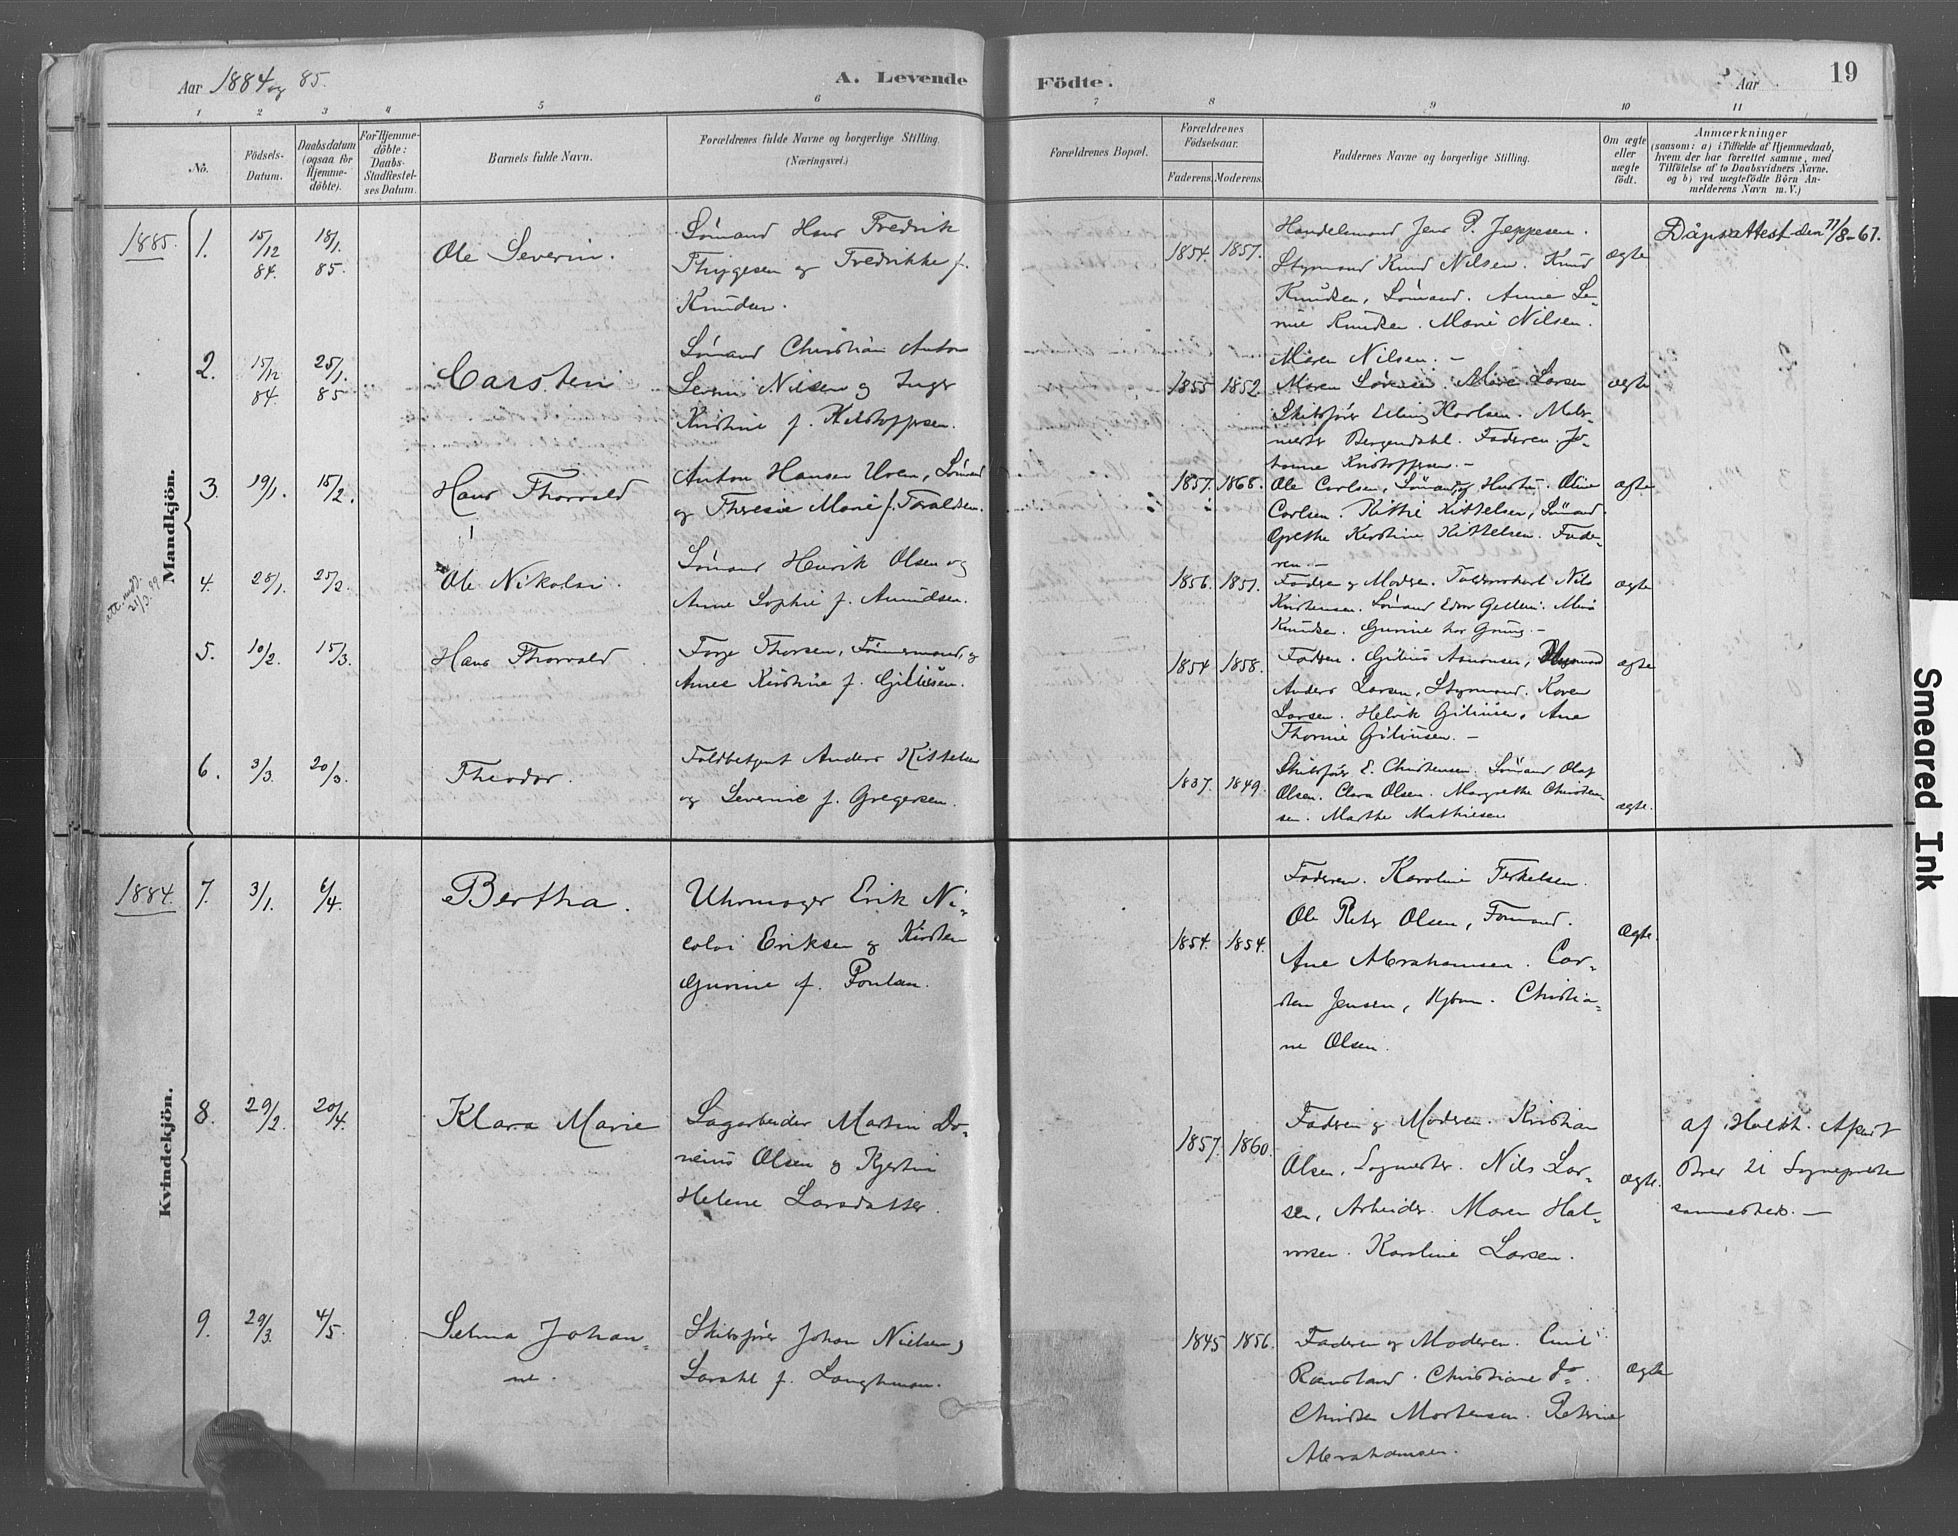 Aar 1884 og 85.
A. Levende
Födte.
Aar
19
1 2 3 4 5 6 7 8 9 10 11
No.
Födsels-
Datum.
Daabsdatum
(ogsaa for
Hjemme-
döbte).
For Hjemme-
döbte:
Daabs-
Stadfæstel-
ses Datum.
Barnets fulde Navn.
Forældrenes fulde Navne og borgerlige Stilling.
(Næringsvei.)
Forældrenes Bopæl.
Forældrenes
Födselsaar.
Faderens. Moderens.
Faddernes Navne og borgerlige Stilling.
Om ægte
eller
uægte
födt.
Anmærkninger
(saasom: a) i Tilfælde af Hjemmedaab,
hvem der har forrettet samme, med
Tilföielse af to Daabsvidners Navne.
og b) ved uægtefödte Börn An-
melderens Navn m. V.)
Mandkjön.
1885.
1. 15/12 84. 18/1. 85.
Ole Severin.
Sömand Hans Fredrik
Thygesen og Fredrikke f.
Knudsen.
1854. 1857.
Handelsmand Jens P. Jeppesen.
Styrmand Knud Nilsen. Knud
Knudsen, Sömand. Anne Se-
rine Knudsen. Marie Nilsen.
Maren Nilsen. -
ægte
Dåpsattest den 11/8-61.
2. 15/12 84. 25/1. 85
Carsten
Sömand Christian Anton
Severin Nilsen og Inger
Kristine f. Kristoffersen.
1855 1852.
Maren Larsen
Skibsförer Elling Karlsen.
Bergendahl. Faderen. Jo-
hanne Kristoffersen. -
ægte
3. 19/1. 15/2.
Hans Thorvald
Anton Hansen Uren, Sömand
og Theresie Marie f. Taraldsen.
1857. 1868.
Ole Carlsen, Sömand, og Hustru Oline
Carlsen. Kittil Kittelsen, Sömand.
Grethe Kirstine Kittelsen. Fade-
ren. -
ægte
4. 28/1. 25/2.
att. medd.
Ole Nikolai.
Sömand Henrik Olsen og
Anne Sophie f. Amundsen.
1856. 1851.
Fadren og Modren. Nils
Kristensen. Sömand
Knudsen. -
ægte
5. 10/2. 15/3.
Hans Thorvald
Terje Thorsen, Tömmermand, og
Anne Kirstine f. Giliusen.
1854 1858.
Fadren. Gilius
Anders Larsen, Styrmand. Karen
Larsen. Helvik Giliusen. Ane
Thorine Giliusen. -
ægte
6. 3/3. 20/3.
Theodor.
Toldbetjent Anders Kittelsen
og Severine f. Gregersen.
1837. 1849.
Skibsförer E. Christensen. Sömand Olaf
Olsen. Clara Olsen. Margrethe Christen-
sen. Marthe Mathiesen
ægte.
Kvindekjön.
1884.
7. 3/1. 6/4.
Bertha.
Uhrmager Erik Ni-
colai Eriksen og Kirsten
Gurine f. Poulsen.
1854. 1854.
Faderen. Karoline Terkelsen.
Ole Peter Olsen, Formand.
Ane Abrahamsen. Car-
sten Jensen, Kjbm. Christia-
ne Olsen.
Ægte.
8. 29/2. 20/4.
Klara Marie
Sagarbeider Martin Do-
renius Olsen og Kjerstin
Helene Larsdatter.
1857. 1860.
Fadren og Modren. Kristian
Olsen, Sagmester. Nils Lar-
sen, Arbeider. Maren Hal-
vorsen. Karoline Larsen.
ægte.
af Holth. Apert
Brev til Sognepresten
sammesteds. -
9. 29/3. 4/5.
Selma Johan-
ne.
Skibsförer Johan Nielsen og
Sarahl f. Langhman.
1845 1856.
Faderen og Moderen. Emil
Ramsland. Christiane do.
Christen Mortensen. Petrine
Abrahamsen.
Ægte
Smeared Ink